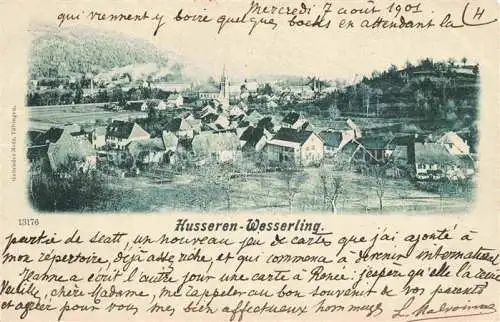 Mercredi 7 août 1901 (4
qui viennent y boire quelques bocks en attendant la
Gebrüder Metz, Tübingen.
13176
Husseren-Wesserling.
partie de scatt, un nouveau jeu de cartes que j'ai ajouté à
mon répertoire, déjà assez riche et qui commence à devenir international
Jeanne a écrit l'autre jour une carte à Renée: j'espère qu'elle l'a reçue
Veuillez, chère Madame, me rappeler au bon souvenir de vos parents
et agréer pour vous mes bien affectueux hommages